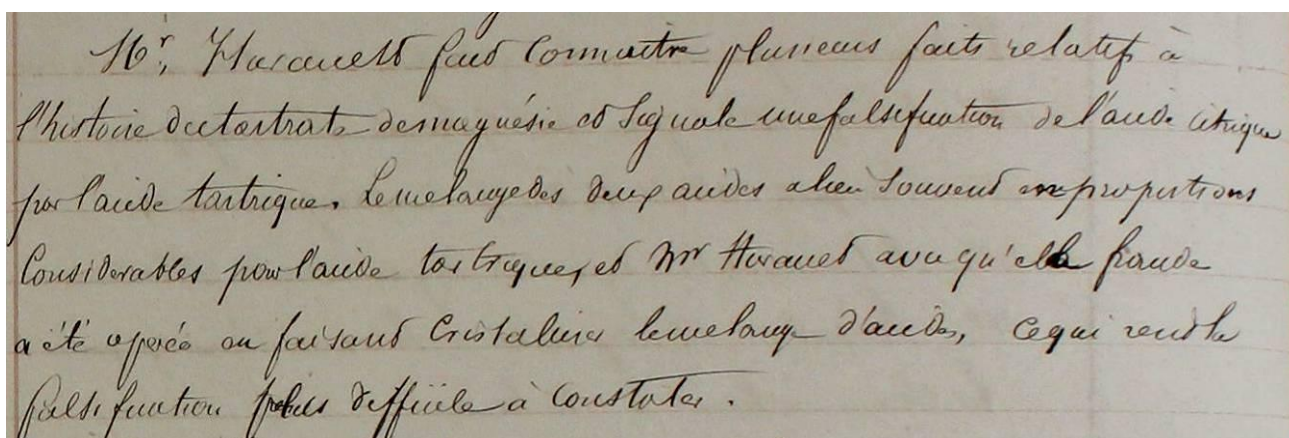 Mr, Huraut fait Connaitre plusieurs faits relatifs à
l'histoire du tartrate de magnésie et Signale une falsification de l'acide citrique
par l'acide tartrique. Le melange des deux acides a lieu Souvent en proportions
Considerables pour l'acide tartrique, et Mr Huraut a vu qu'elle fraude
a été operée en faisant Cristaliser le melange d'acides, ce qui rend la
falsification plus difficile à Constater.